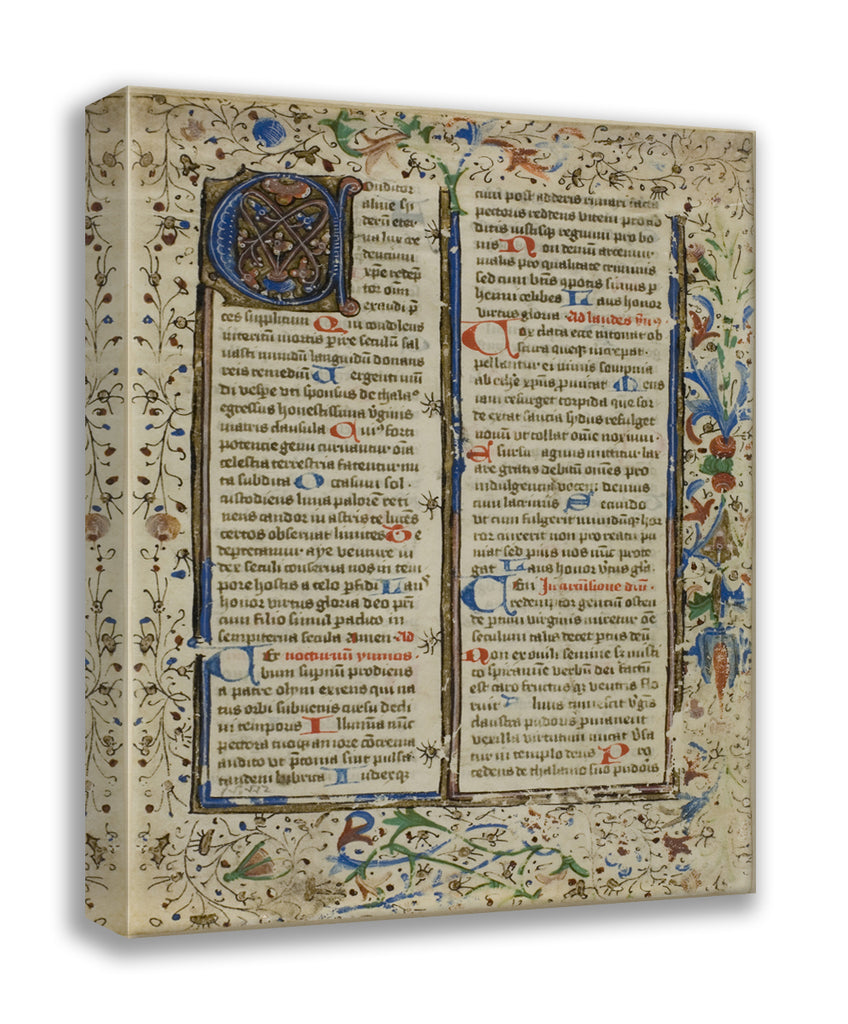 Conditor
alme si
derū eter
na lux cre
dentium
xp̄e redēp
tor om̄
exaudi p̄
ces supplicum Qui condolens
interitū mortis p̄ire seculū sal
uasti mundū languidū donans
reis remediū Uergente mū
di vesp̄e vti sponsus de thala
egressus honestissima v̄ginis
matris clausula Cuiꝰ forti
potencie genu curuantur oīa
celestia terrestria fatentur nu
ta subdita Occasum sol
custodiens luna palorē reti
nens candor in astris relucēs
certos obseruat limites Te
deprecamur aye venture iu
dex seculi conserua nos in tem
pore hostis a telo p̄fidi Lauꝰ
honor virtus gloria deo pri
cum filio simul paclito in
sempiterna secula amen Ad
Uer nocturnū ymnos
bum supnū prodiens
a patre olym exiens qui na
tus orbi subuenis cursu decli
ui temporis Illumina nūc
pectora tuoqꝫ amore cōcrema
audito vt p̄conia sint pulsa
tandem lubrica Iudexqꝫ
cum post adderis rimari facta
pectoris reddens vicem pro ab
ditis iustisqꝫ regnum pro bo
nis Non demū artemur
malis pro qualitate criminis
sed cum btīs 9potes simus p̄
hennes celibes Laus honor
virtus gloria Ad laudes ymꝰ
Uox clara ecce intonat ob
scura queqꝫ increpat
pellantur eminus sompnia
ab ethe xp̄us pmicat Mens
iam resurget torpida que sor
de extat saucia sydus refulget
nouū vt tollat om̄e noxium
E sursū agnus mittitur lax
are gratis debitū om̄es pro
indulgencia vocem demus
cum lacrimis Secundo
vt cum fulgerit mundūqꝫ hor
ror cinxerit non pro reatu pu
niat sed pius nos tūc prote
gat Laus honor v̄tus glīa
Ueni In aduētione dnī
redemptor gencium osten
de partum virginis miretur om̄e
seculum talis decet p̄tus deū
Non ex virili semine sꝫ misti
co spiramine verbū dei factū
est caro fructusqꝫ ventris flo
ruit Aluus tumescit v̄gīs
claustra pudoris pmanent
vexilla virtutum micāt v̄sa
tur in templo deus Pro
cedens de thalamo suo pudoris